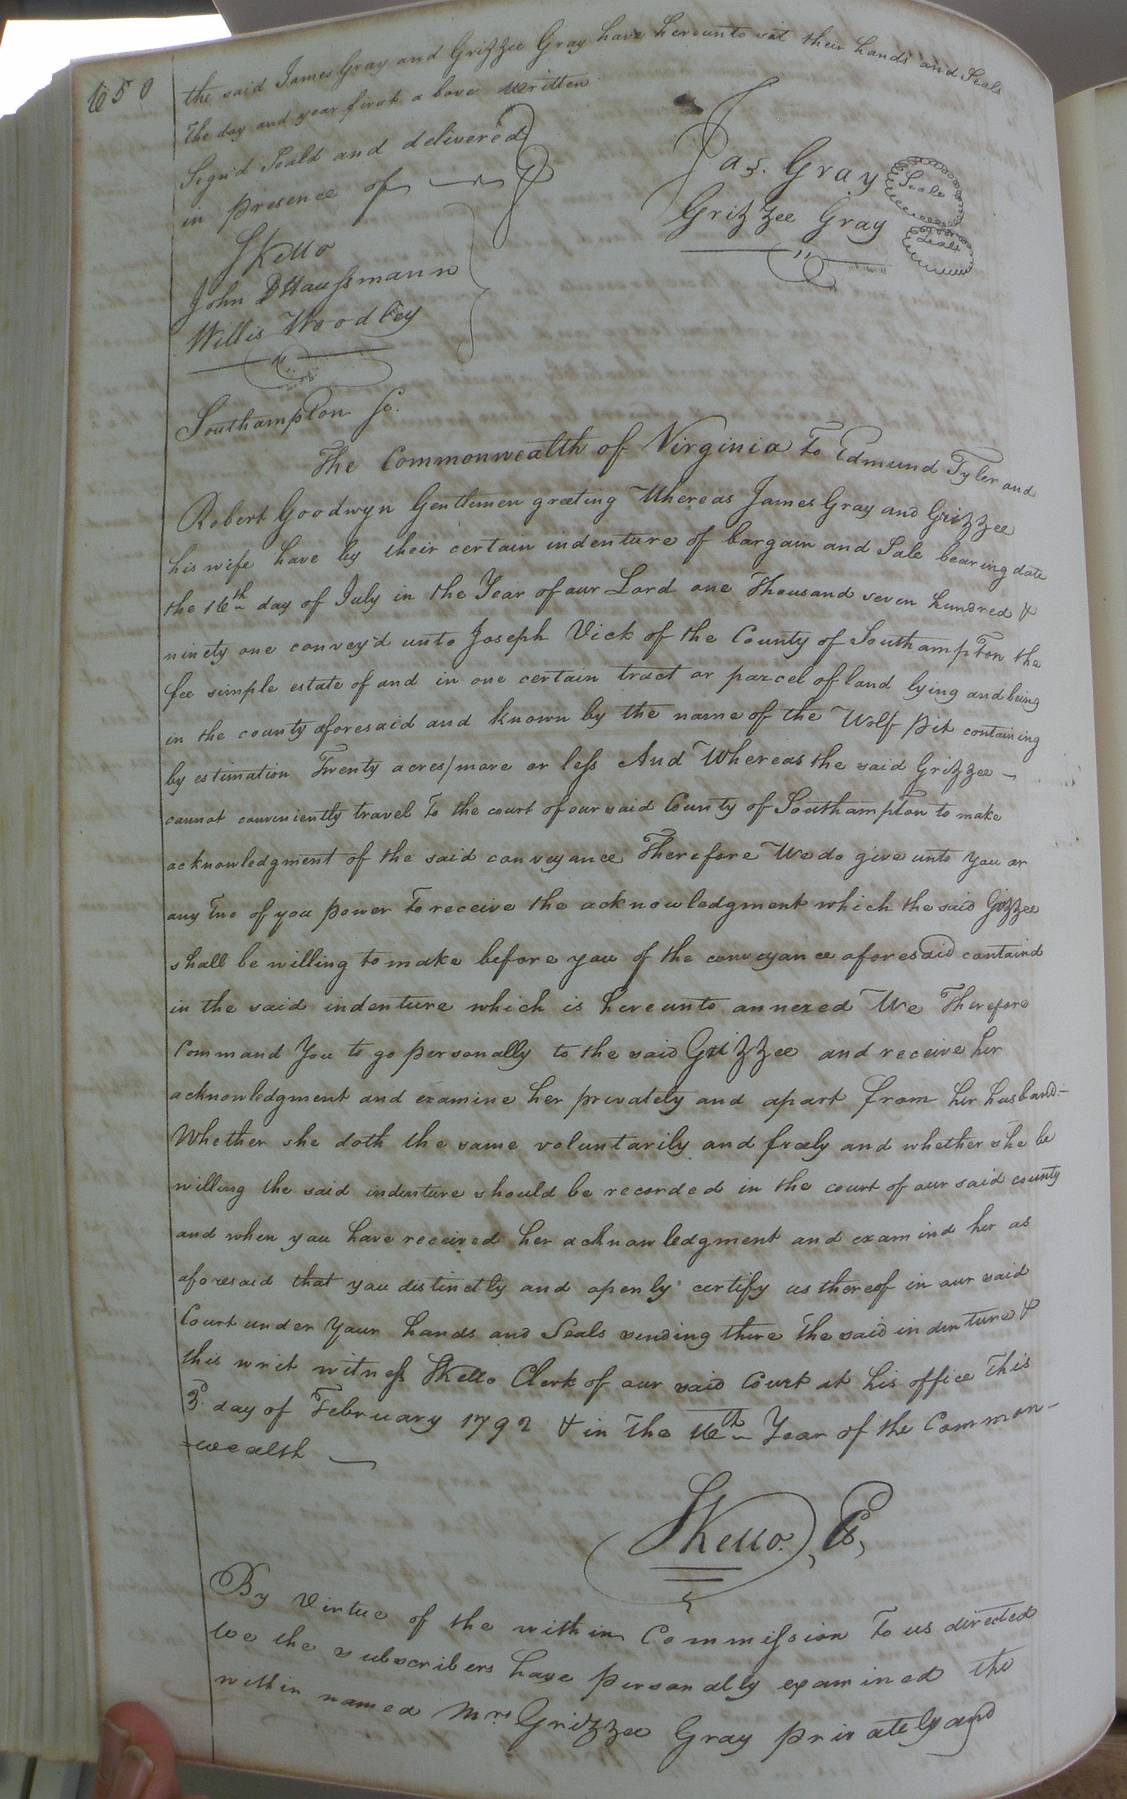 650
the said James Gray and Grizzee Gray have hereunto set their hands and Seals
the day and year first above written
Sign'd Seald and delivered
in presence of
Jas. Gray Seale
Grizzee Gray Seale
SKello
John D Haussmann
Willis Woodley
Southampton Sc.
The Commonwealth of Virginia To Edmund Tyler and
Robert Goodwyn Gentlemen greeting Whereas James Gray and Grizzee
his wife have by their certain indenture of bargain and Sale bearing date
the 16th day of July in the Year of our Lord one Thousand seven hundred &
ninety one convey'd unto Joseph Vick of the County of Southampton the
fee simple estate of and in one certain tract or parcel of land lying and being
in the county aforesaid and known by the name of the Wolf pit containing
by estimation Twenty acres/more or less And Whereas the said Grizzee
cannot conveniently travel To the court of our said County of Southampton to make
acknowledgment of the said conveyance Therefore We do give unto you or
any two of you power To receive the acknowledgment which the said Grizzee
shall be willing to make before you of the conveyance aforesaid containd
in the said indenture which is hereunto annexed We Therefore
Command You to go personally to the said Grizzee and receive her
acknowledgment and examine her privately and apart from her husband
Whether she doth the same voluntarily and freely and whether she be
willing the said indenture should be recorded in the court of our said county
and when you have received her acknowledgment and examind her as
aforesaid that you distinctly and openly certify us thereof in our said
Court under Your hands and Seals sending there the said indenture &
this writ witness SKello Clerk of our said Court at his office This
3 day of February 1792 & in The 16th Year of the Common-
-wealth
SKello. C,
By virtue of the within Commission To us directed
We the subscribers have personally examined the
within named Mrs Grizzee Gray privately and